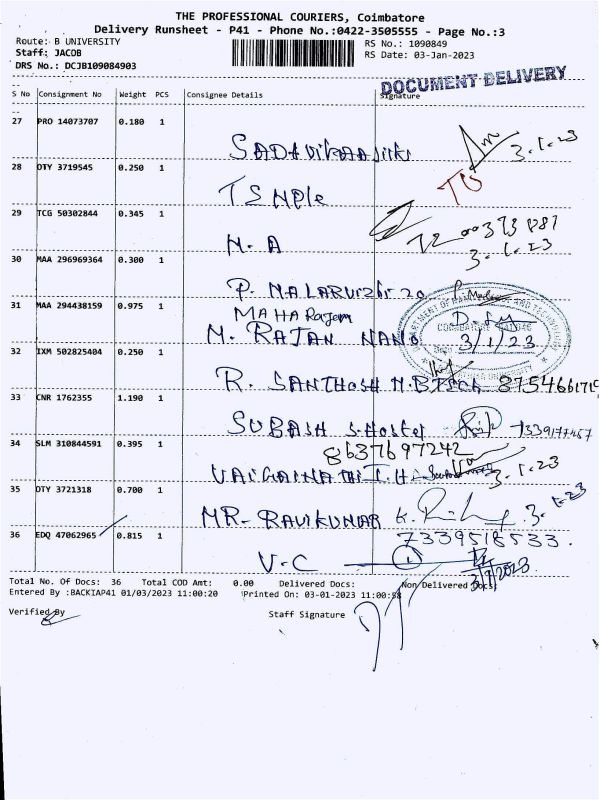 THE PROFESSIONAL COURIERS, Coimbatore
Delivery Runsheet - P41 - Phone No.:0422-3505555 - Page No.:3
Route: B UNIVERSITY
RS No.: 1090849
Staff: JACOB
RS Date: 03-Jan-2023
DRS No.: DCJB109084903
DOCUMENT DELIVERY
S No Consignment No Weight PCS Consignee Details Signature
27 PRO 14073707 0.180 1
3.1.23
28 OTY 3719545 0.250 1
TSMPle
29 TCG 50302844 0.345 1
M.A
3.1.23
30 MAA 296969364 0.300 1
P. MALARVIZhi
31 MAA 294438159 0.975 1
MAHARajan
M. RAJAN NANO 3/1/23
32 IXM 502825404 0.250 1
R. SANTHOSH M.BTECH
33 CNR 1762355 1.190 1
SUBASH S.Hostel 7339177467
34 SLM 310844591 0.395 1
8637697242
3.1.23
35 OTY 3721318 0.700 1
MR. RAVIKUMAR 3.1.23
36 EDQ 47062965 0.815 1
7339518533.
V.C 3/1/2023
Total No. Of Docs: 36 Total COD Amt: 0.00 Delivered Docs: Non Delivered Docs:
Entered By :BACKIAP41 01/03/2023 11:00:20 Printed On: 03-01-2023 11:00:58
Verified By Staff Signature